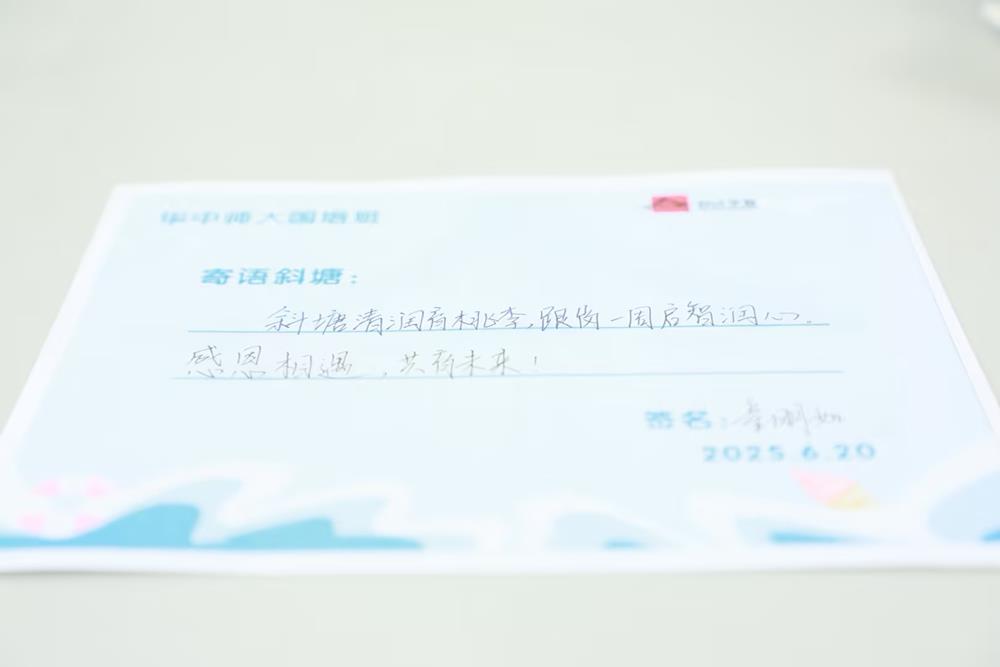 华中师大国培班
寄语斜塘:
斜塘清润育桃李,跟岗一周启智润心.
感恩相遇,共育未来!
签名:
2025.6.20